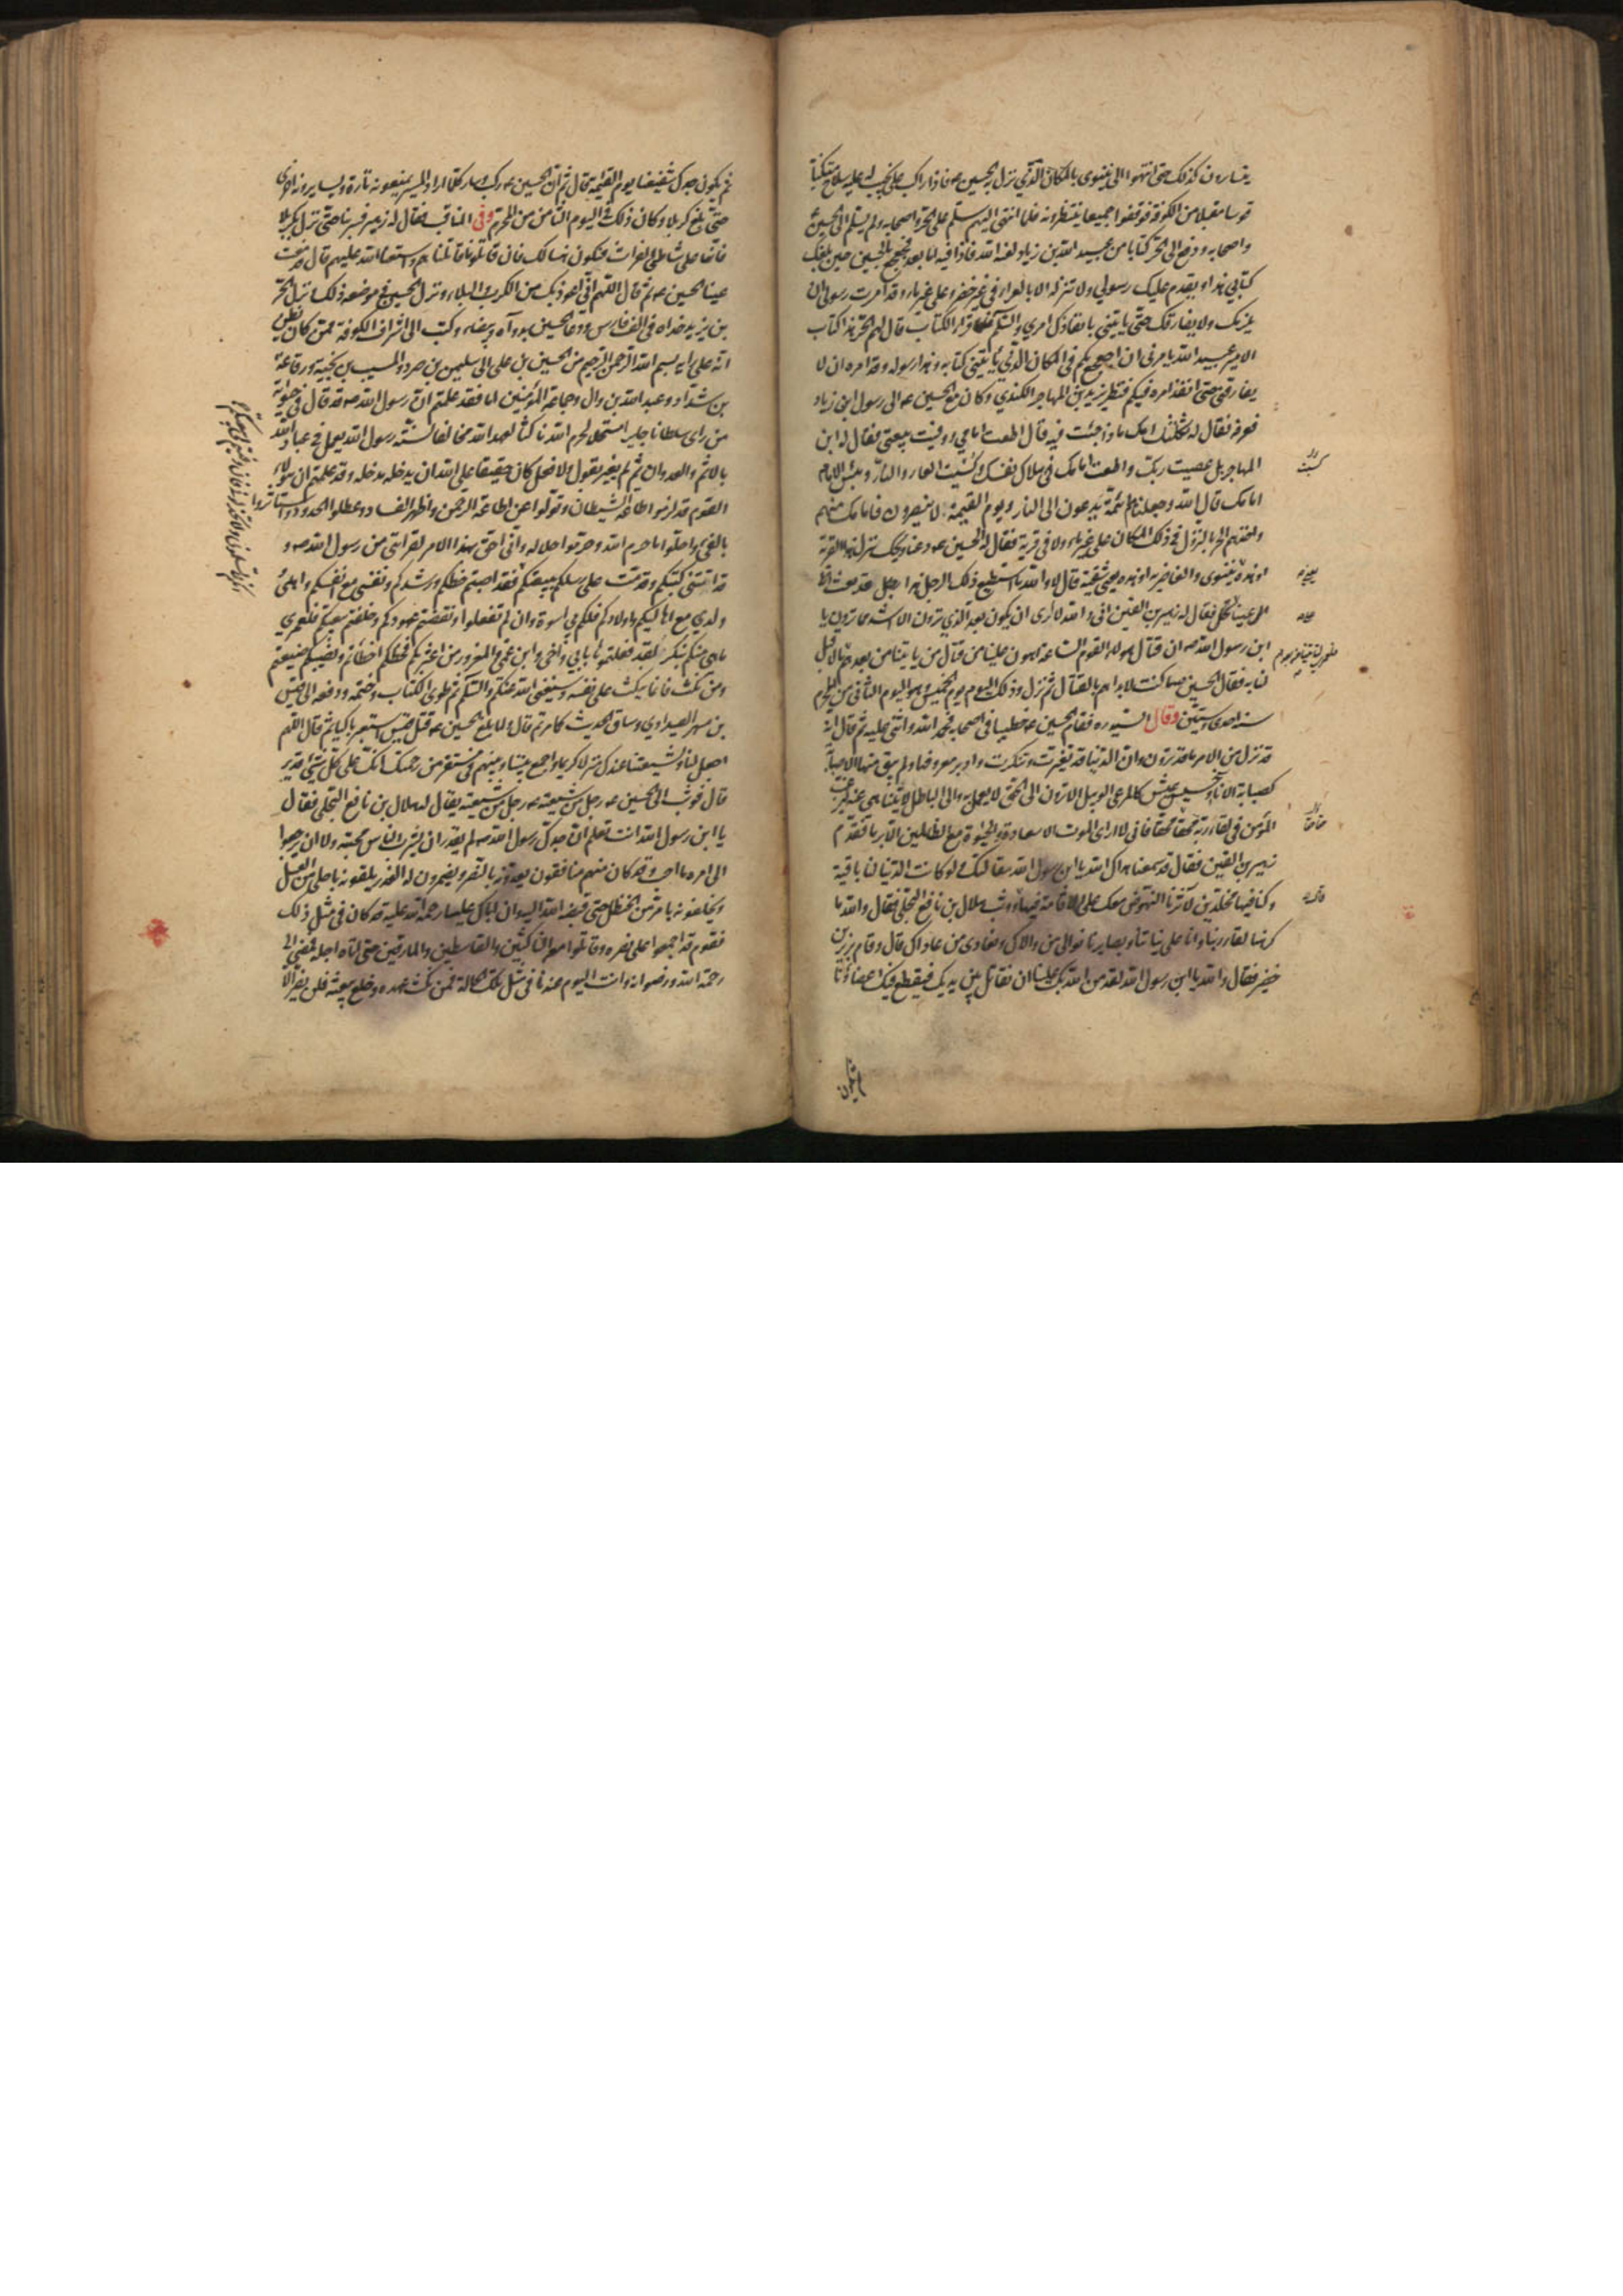 يتسايرون كذلك حتى انتهوا الى نينوى بالمكان الذي نزل به الحسين ع فاذا راكب على نجيب له عليه سلاح متنكبا
قوسا مقبلا من الكوفة فوقفوا جميعا ينتظرونه فلما انتهى اليهم سلم على الحر واصحابه ولم يسلم الى الحسين
واصحابه ودفع الى الحر كتابا من عبيد الله بن زياد لعنه الله فاذا فيه اما بعد فجعجع بالحسين حين يبلغك
كتابي هذا ويقدم عليك رسولي ولا تنزله الا بالعراء في غير خضر وعلى غير ماء وقد امرت رسولي ان
يلزمك ولا يفارقك حتى ياتيني بانفاذك امري والسلم فلما قرا الكتاب قال لهم الحر هذا كتاب
الامير عبيد الله يامرني ان اجعجع بكم في المكان الذي ياتيني كتابه وهذا رسوله وقد امره ان لا
يفارقني حتى انفذ امره فيكم فنظر يزيد بن المهاجر الكندي وكان مع الحسين ع الى رسول ابن زياد
فعرفه فقال له ثكلتك امك ماذا جئت فيه قال اطعت امامي ووفيت ببيعتي فقال له ابن
المهاجر بل عصيت ربك واطعت امامك في هلاك نفسك وكسيت العار والنار وبئس الامام
امامك قال الله وجعلناهم ائمة يدعون الى النار ويوم القيمة لا ينصرون فامامك منهم
واخذهم الحر بالنزول في ذلك المكان على غير ماء ولا في قرية فقال له الحسين ع دعنا ويحك ننزل هذه القرية
او هذه نينوى والغاضرية او هذه يعني شفية قال لا والله ما استطيع ذلك هذا رجل قد بعث
الي عينا علي فقال له زهير بن القين اني والله لا ارى ان يكون بعد الذي ترون الا اشد مما ترون يا
ابن رسول الله ص ان قتال هولاء القوم الساعة اهون علينا من قتال من ياتينا من بعدهم ما لا قبل
لنا به فقال الحسين ع ما كنت لابدأهم بالقتال ثم نزل وذلك اليوم يوم الخميس وهو اليوم الثاني من المحرم
سنة احدى وستين وقال السيد ره فقام الحسين ع خطيبا في اصحابه فحمد الله واثنى عليه ثم قال انه
قد نزل من الامر ما قد ترون وان الدنيا قد تغيرت وتنكرت وادبر معروفها ولم يبق منها الا صبابة
كصبابة الاناء وخسيس عيش كالمرعى الوبيل الا ترون الى الحق لا يعمل به والى الباطل لا يتناهى عنه ليرغب
المؤمن في لقاء ربه محقا فاني لا ارى الموت الا سعادة والحيوة مع الظالمين الا برما فقام
زهير بن القين فقال قد سمعنا هداك الله يا ابن رسول الله مقالتك ولو كانت الدنيا لنا باقية
وكنا فيها مخلدين لآثرنا النهوض معك على الاقامة فيها ووثب هلال بن نافع البجلي فقال والله ما
كرهنا لقاء ربنا وانا على نياتنا وبصايرنا نوالي من والاك ونعادي من عاداك قال وقام برير بن
خضير فقال والله يا ابن رسول الله لقد من الله بك علينا ان نقاتل بين يديك فيقطع فيك اعضاؤنا
ثم يكون
ثم يكون جدك شفيعنا يوم القيمة قال ثم ان الحسين ع ركب وسار كلما اراد المسير يمنعونه تارة ويسايرونه اخرى
حتى بلغ كربلا وكان ذلك في اليوم الثامن من المحرم وفي المناقب فقال له زهير فسر بنا حتى ننزل بكربلا
فانها على شاطئ الفرات فنكون هنالك فان قاتلونا قاتلناهم واستعنا الله عليهم قال فدمعت
عينا الحسين ع ثم قال اللهم اني اعوذ بك من الكرب والبلاء ونزل الحسين في موضعه ذلك ونزل الحر
بن يزيد حذاه في الف فارس ودعا الحسين بدواة وبيضاء وكتب الى اشراف الكوفة ممن كان يظن
انه على رايه بسم الله الرحمن الرحيم من الحسين بن علي الى سليمن بن صرد والمسيب بن نجية ورفاعة
بن شداد وعبد الله بن وال وجماعة المؤمنين اما بعد فقد علمتم ان رسول الله ص قد قال في حيوته
من راى سلطانا جايرا مستحلا لحرم الله ناكثا لعهد الله مخالفا لسنة رسول الله يعمل في عباد الله
بالاثم والعدوان ثم لم يغير بقول ولا فعل كان حقيقا على الله ان يدخله مدخله وقد علمتم ان هولاء
القوم قد لزموا طاعة الشيطان وتولوا عن طاعة الرحمن واظهروا الفساد وعطلوا الحدود واستاثروا
بالفئ واحلوا حرام الله وحرموا حلاله واني احق بهذا الامر لقرابتي من رسول الله ص و
قد اتتني كتبكم وقدمت علي رسلكم ببيعتكم فقد اصبتم حظكم ورشدكم ونفسي مع انفسكم واهلي
وولدي مع اهاليكم واولادكم فلكم بي اسوة وان لم تفعلوا ونقضتم عهودكم وخلعتم بيعتكم فلعمري
ما هي منكم بنكر لقد فعلتموها بابي واخي وابن عمي والمغرور من اغتر بكم فحظكم اخطاتم ونصيبكم ضيعتم
ومن نكث فانما ينكث على نفسه وسيغني الله عنكم والسلم ثم طوى الكتاب وختمه ودفعه الى قيس
بن مسهر الصيداوي وساق الحديث كما مر ثم قال ولما بلغ الحسين ع قتل قيس استعبر باكيا ثم قال اللهم
اجعل لنا ولشيعتنا عندك منزلا كريما واجمع بيننا وبينهم في مستقر من رحمتك انك على كل شئ قدير
قال فوثب الى الحسين ع رجل من شيعته يقال له هلال بن نافع البجلي فقال
يا ابن رسول الله انت تعلم ان جدك رسول الله ص لم يقدر ان يشرب الناس محبته ولا ان يرجعوا
الى امره ما احب وقد كان منهم منافقون يعدونه بالنصر ويضمرون له الغدر يلقونه باحلى من العسل
ويخلفونه بامر من الحنظل حتى قبضه الله اليه وان اباك عليا رحمة الله عليه قد كان في مثل ذلك
فقوم قد اجمعوا على نصره وقاتلوا معه الناكثين والقاسطين والمارقين حتى اتاه اجله فمضى الى
رحمة الله ورضوانه وانت اليوم عندنا في مثل تلك الحالة فمن نكث عهده وخلع بيعته فلن يضر الا